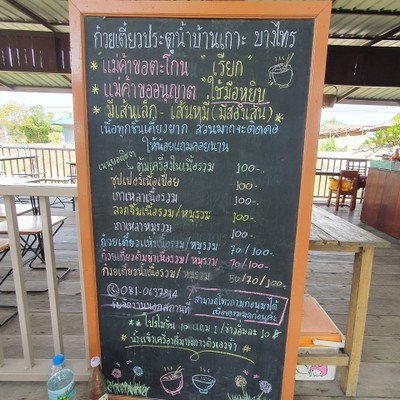 ก๋วยเตี๋ยวประตูน้ำบ้านเกาะ บางไทร
*แม่ค้าขอตะโกน "เรียก"
*แม่ค้าขออนุญาต "ใช้มือหยิบ
*มีเส้นเล็ก - เส้นหมี่ (มีสองเส้น)
เนื้อทุกชิ้นเคี่ยวยาก ส่วนมากจะติดต่อ
ให้น้อยแถมคอยนาน
ต้มเครื่องในเนื้อรวม 100-.
ซุปเปอร์เนื้อเปื่อย 100-.
เกาเหลาเนื้อรวม 100-.
ลวกจิ้มเนื้อรวม/หมูรวม 100-.
เกาเหลาหมูรวม 100-.
ก๋วยเตี๋ยวแห้งเนื้อรวม/หมูรวม 70/100-.
ก๋วยเตี๋ยวต้มยำเนื้อรวม/หมูรวม 70/100-.
ก๋วยเตี๋ยวน้ำเนื้อรวม/หมูรวม 50/70/100-.
รับจัดงานนอกสถานที่
สามารถโทรถามก่อนมาได้